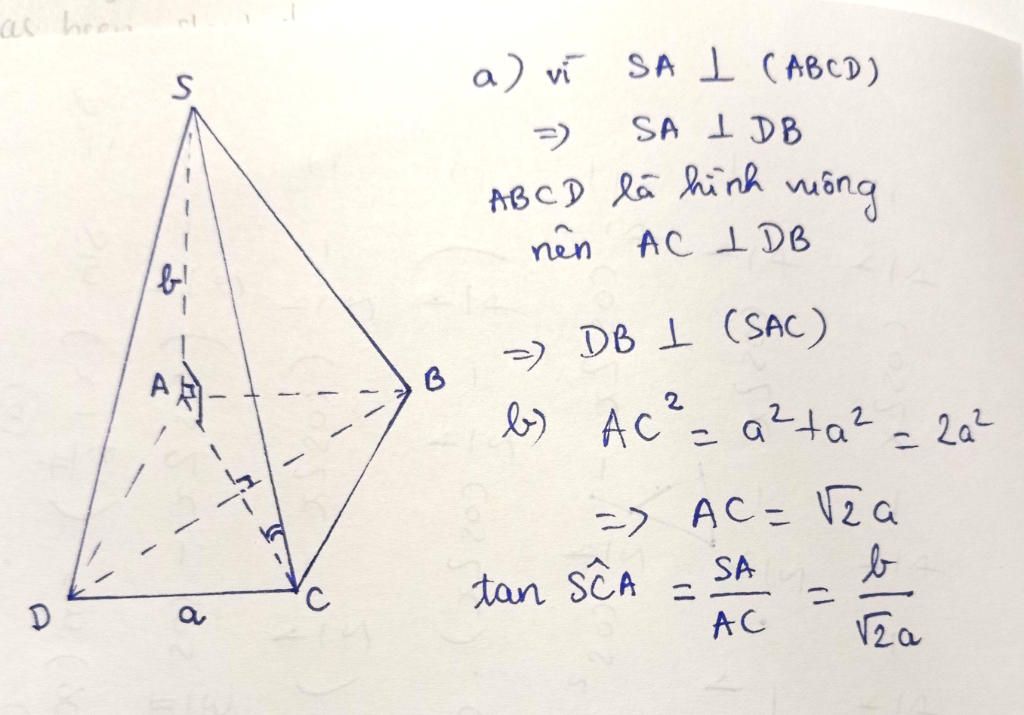 S
b
A
B
D
a
C
a) vì SA ⊥ (ABCD)
=> SA ⊥ DB
ABCD là hình vuông
nên AC ⊥ DB
=> DB ⊥ (SAC)
b) AC² = a² + a² = 2a²
=> AC = √2 a
tan SĈA = SA/AC = b/√2a